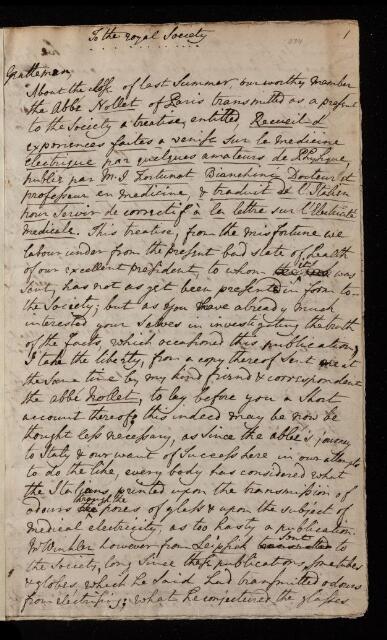 To the Royal Society
1
Gentlemen,
About the close of last Summer, our worthy Member
the Abbé Nollet of Paris transmitted as a present
to the Society a treatise, entitled Recueil d
experiences faites a Venise sur le medicine
electrique par quelques amateurs de Physique,
publié par M. J. Fortunat Bianchini Docteur et
professeur en medicine, & traduit de l'Italien
pour servir de correctif à la lettre sur l'Electricité
medicale. This treatise, from the misfortune we
labour under from the present bad state of health
of our excellent president, to whom it was
sent, has not as yet been presented in form to
the Society; but as you have already much
interested your selves in investigating the truth
of the facts, which occasioned this publication,
I take the liberty, from a copy thereof sent me at
the same time by my kind friend & correspondent
the abbé Nollet, to lay before you a short
account thereof; this indeed may be now be
thought less necessary, as since the abbé's journey
to Italy & our want of success here in our attempts
to do the like, every body has considered what
the Italians printed upon the transmission of
odours through the pores of glass & upon the subject of
medical electricity, as too hasty a publication.
Mr Winkler however from Leipsick sent to
the Society, long since these publications, some tubes
& globes, which he said had transmitted odours
from electrifying; what he conjectured the glasses